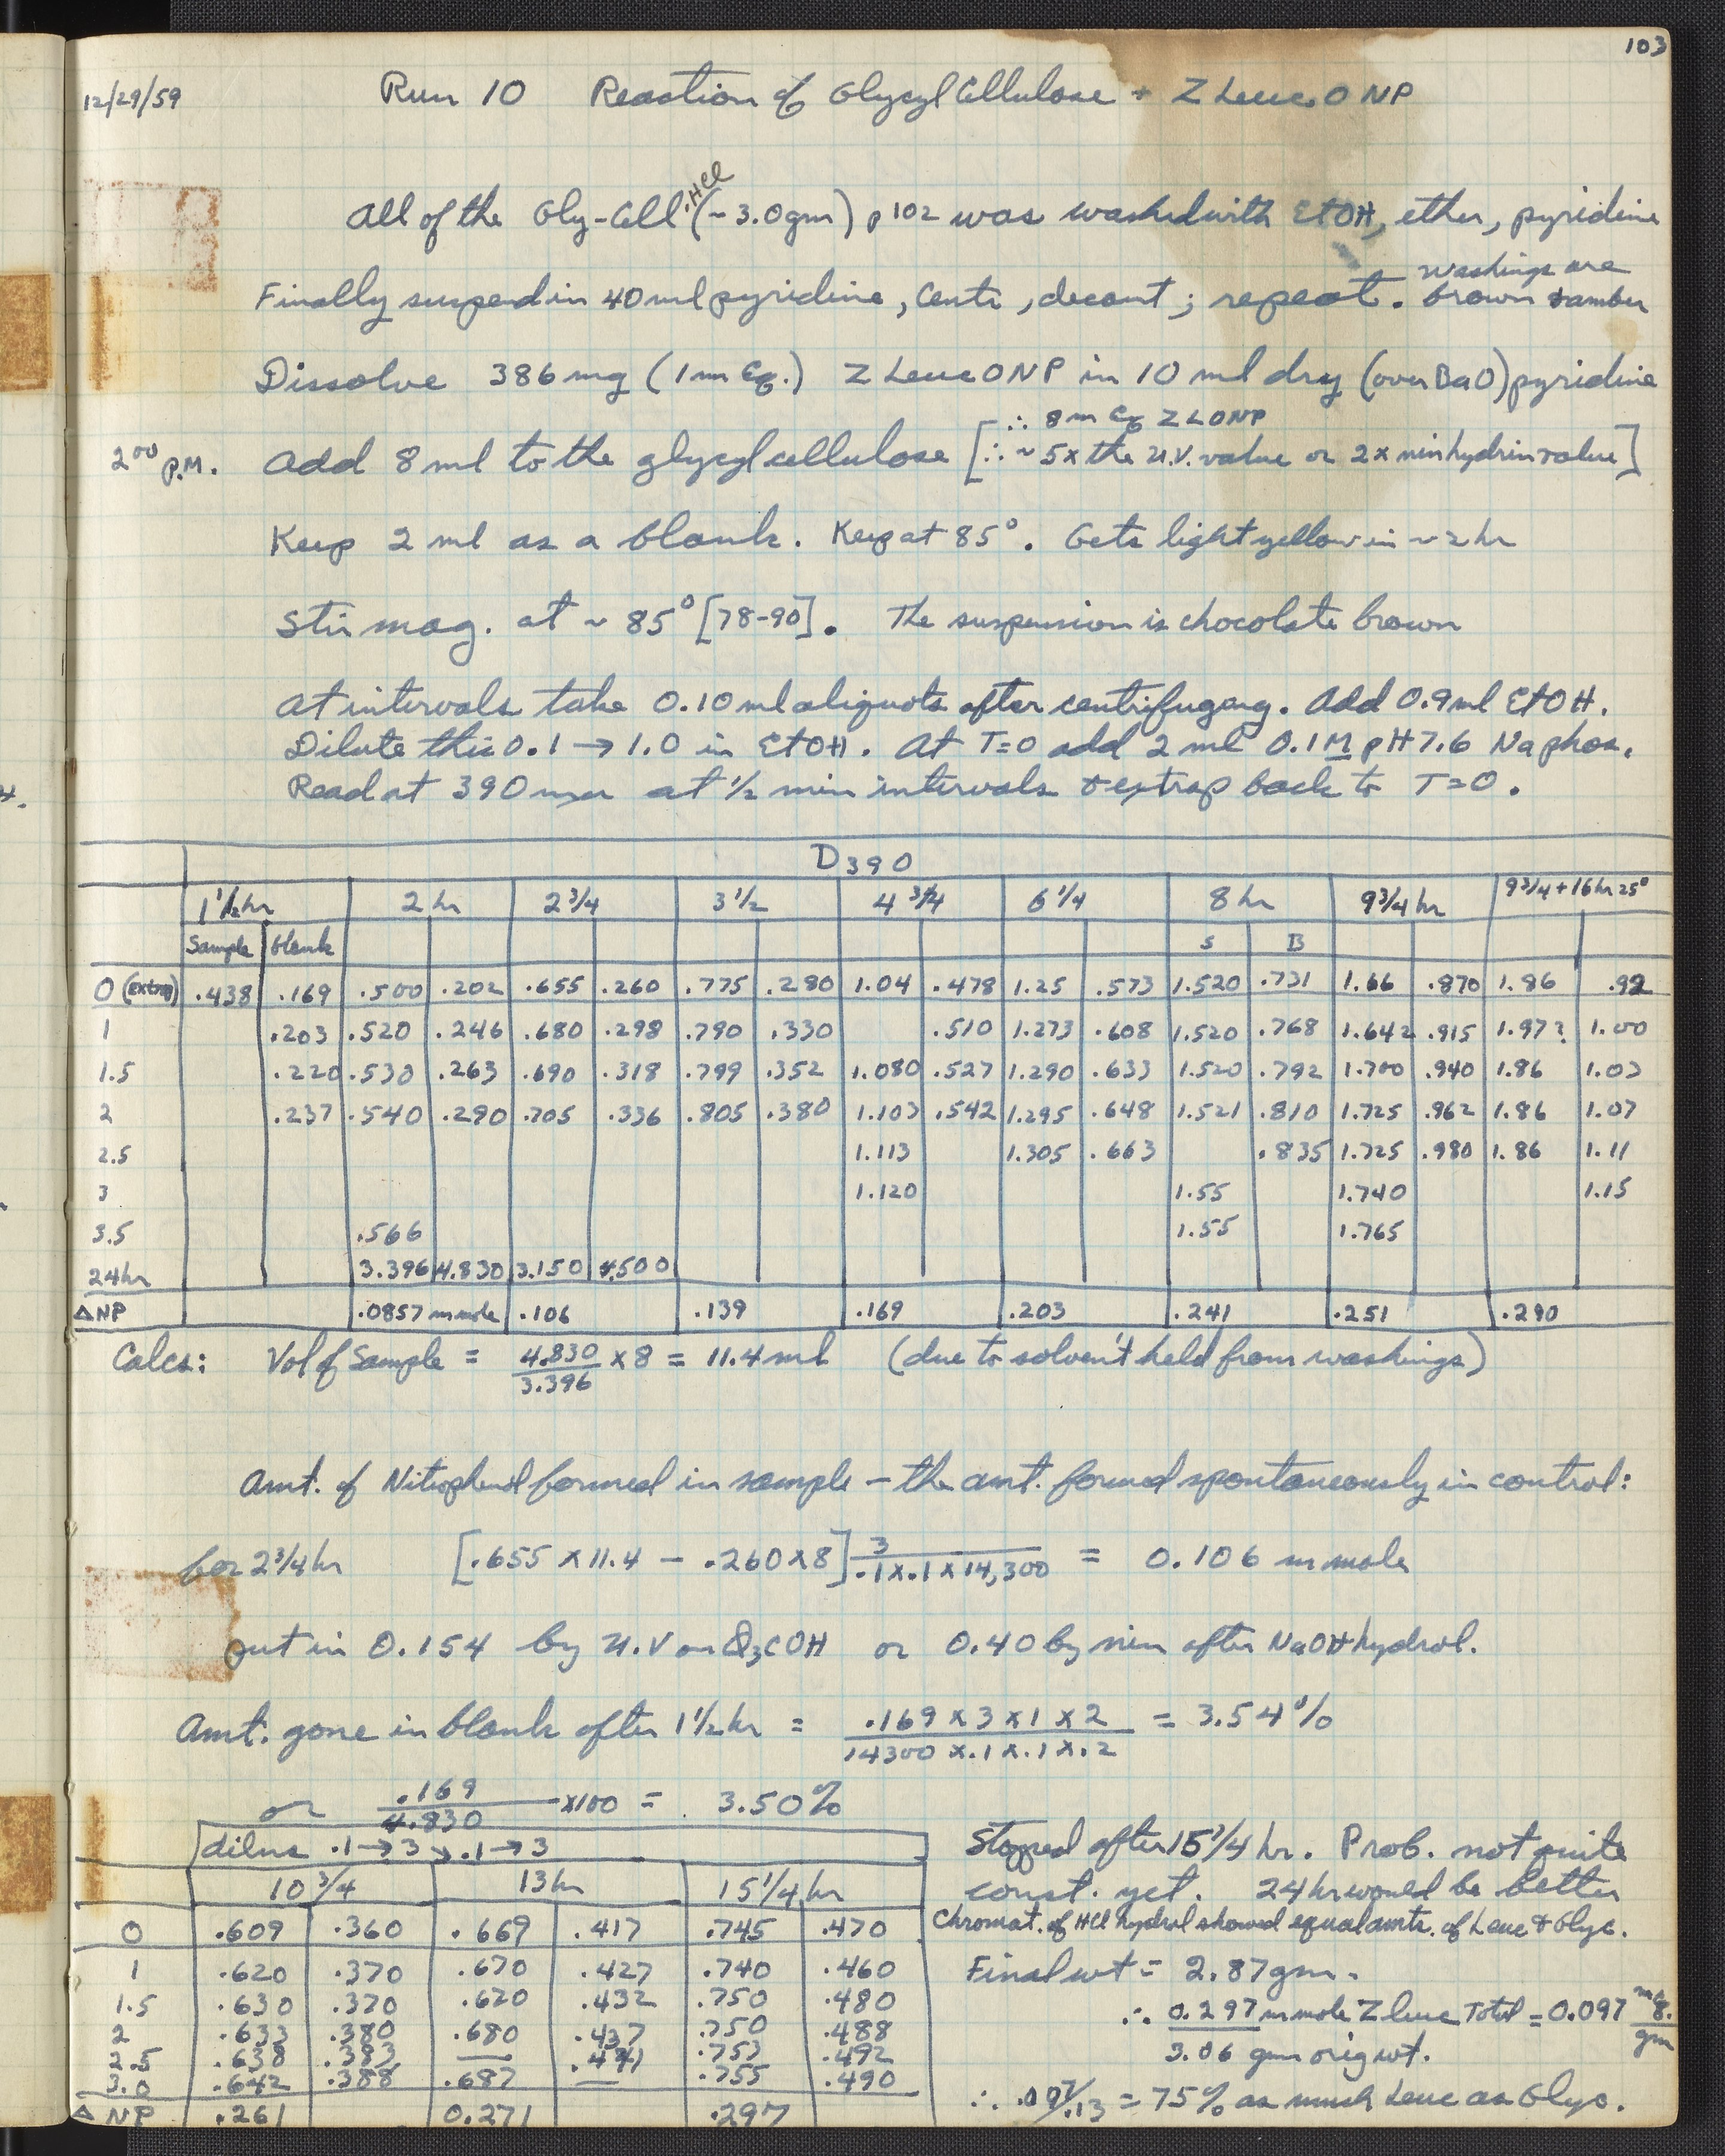 103
12/29/59 Run 10 Reaction of Glycyl Cellulose + Z Leuc. O NP
All of the Gly-Cell·HCl (~3.0gm) p102 was washed with EtOH, ether, pyridine
Finally suspend in 40 ml pyridine, Centr, decant; repeat. Washings are brown & amber
Dissolve 386 mg (1m Eq.) Z Leuc ONP in 10 ml dry (over BaO) pyridine
∴ .8 m Eq ZLONP
2⁰⁰ P.M. Add 8 ml to the glycyl cellulose [∴ ~5x the U.V. value or 2x ninhydrin value]
Keep 2 ml as a blank. Keep at 85°. Gets light yellow in ~2hr
Stir mag. at ~ 85° [78-90]. The suspension is chocolate brown
At intervals take 0.10 ml aliquots after centrifugeing. Add 0.9 ml EtOH.
Dilute this 0.1 → 1.0 in EtOH. At T=0 add 2 ml 0.1M pH 7.6 Na phos.
Read at 390 mμ at ½ min intervals & extrap back to T=0.
D390
1½hr 2 hr 2¾ 3½ 4¾ 6¼ 8 hr 9¾ hr 9¾ + 16hr 25°
Sample blank S B
0 (extrap) .438 .169 .500 .202 .655 .260 .775 .280 1.04 .478 1.25 .573 1.520 .731 1.66 .870 1.86 .92
1 .203 .520 .246 .680 .298 .790 .330 .510 1.273 .608 1.520 .768 1.642 .915 1.97? 1.00
1.5 .220 .530 .263 .690 .318 .799 .352 1.080 .527 1.290 .633 1.520 .792 1.700 .940 1.86 1.03
2 .237 .540 .290 .705 .336 .805 .380 1.103 .542 1.295 .648 1.521 .810 1.725 .962 1.86 1.07
2.5 1.113 1.305 .663 .835 1.725 .980 1.86 1.11
3 1.120 1.55 1.740 1.15
3.5 .566 1.55 1.765
24hr 3.396 4.830 3.150 4.500
Δ NP .0857 mmole .106 .139 .169 .203 .241 .251 .290
Calcs: Vol of Sample = 4.830/3.396 x 8 = 11.4 ml (due to solvent held from washings)
Amt. of Nitrophenol formed in sample – the amt. formed spontaneously in control:
for 2¾hr [.655 x 11.4 – .260 x 8] 3/.1x.1x14,300 = 0.106 m mole
put in 0.154 by U.V on Ø₃COH or 0.40 by nin after NaOH hydrol.
Amt. gone in blank after 1½ hr = .169 x 3 x 1 x 2/14300 x .1 x .1 x .2 = 3.54%
or .169/4.830 x100 = 3.50%
dilns .1→3, .1→3
10¾ 13hr 15¼ hr
0 .609 .360 .669 .417 .745 .470
1 .620 .370 .670 .427 .740 .460
1.5 .630 .370 .620 .432 .750 .480
2 .633 .380 .680 .437 .750 .488
2.5 .638 .383 — .441 .753 .492
3.0 .642 .388 .687 — .755 .490
Δ NP .261 0.271 .297
Stopped after 15¼ hr. Prob. not quite
const. yet. 24 hr would be better
Chromat. of HCl hydrol showed equal amts. of Leuc & Glyc.
Final wt = 2.87 gm.
∴ 0.297 m mole Z leuc Total/3.06 gm orig wt. = 0.097 mEq./gm
∴ .097/.13 = 75% as much Leuc as Glyc.